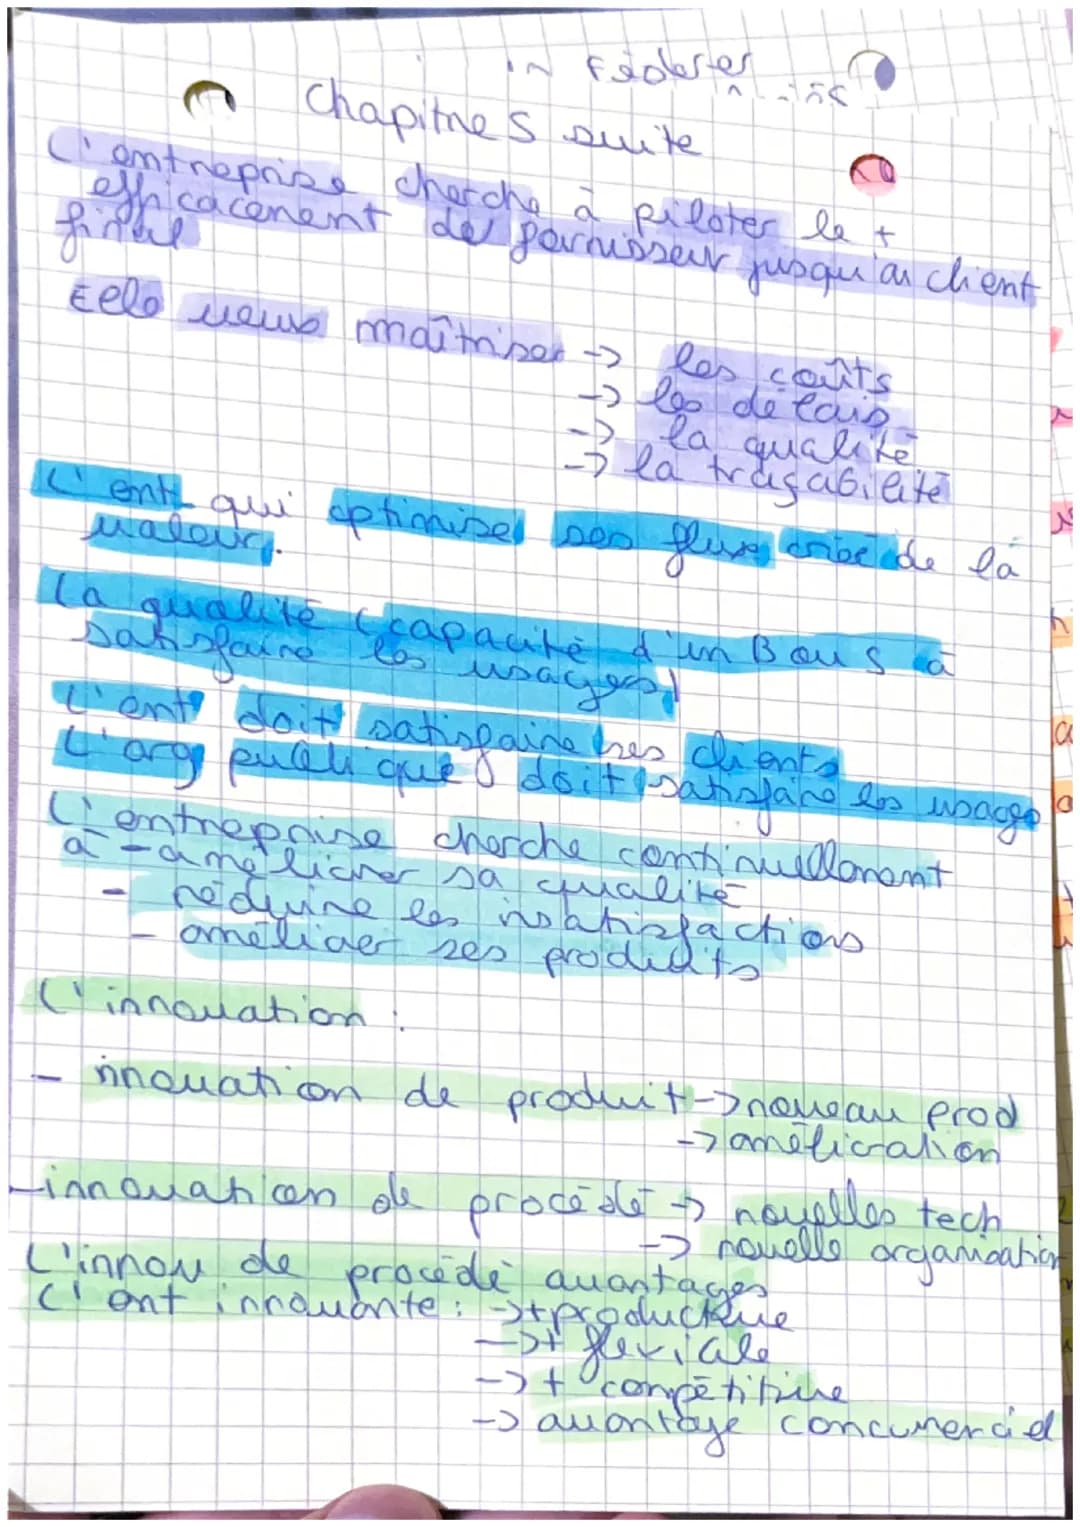 Féderer
Chapitre 5 suite
L'entreprise cherche à piloter le +
efficacement de fournisseur jusqu'au client
final
Elle veut maîtriser -> les coûts
-> les délais
-> la qualité
-> la traçabilité
L'ent qui optimise ses flux crée de la
valeur.
La qualité (capacité d'un B ou S à
satisfaire les usages)
L'ent doit satisfaire ses clients
L'org publique doit satisfaire les usages
L'entreprise cherche continuellement
à - améliorer sa qualité
- réduire les insatisfactions
- améliorer ses produits
L'innovation :
- innovation de produit -> nouveau prod
-> amélioration
- innovation de procédé -> nouvelles tech
-> nouvelle organisation
L'innov de procédé avantages
L'ent innovante : -> + productive
-> + flexible
-> + compétitive
-> avantage concurrenciel